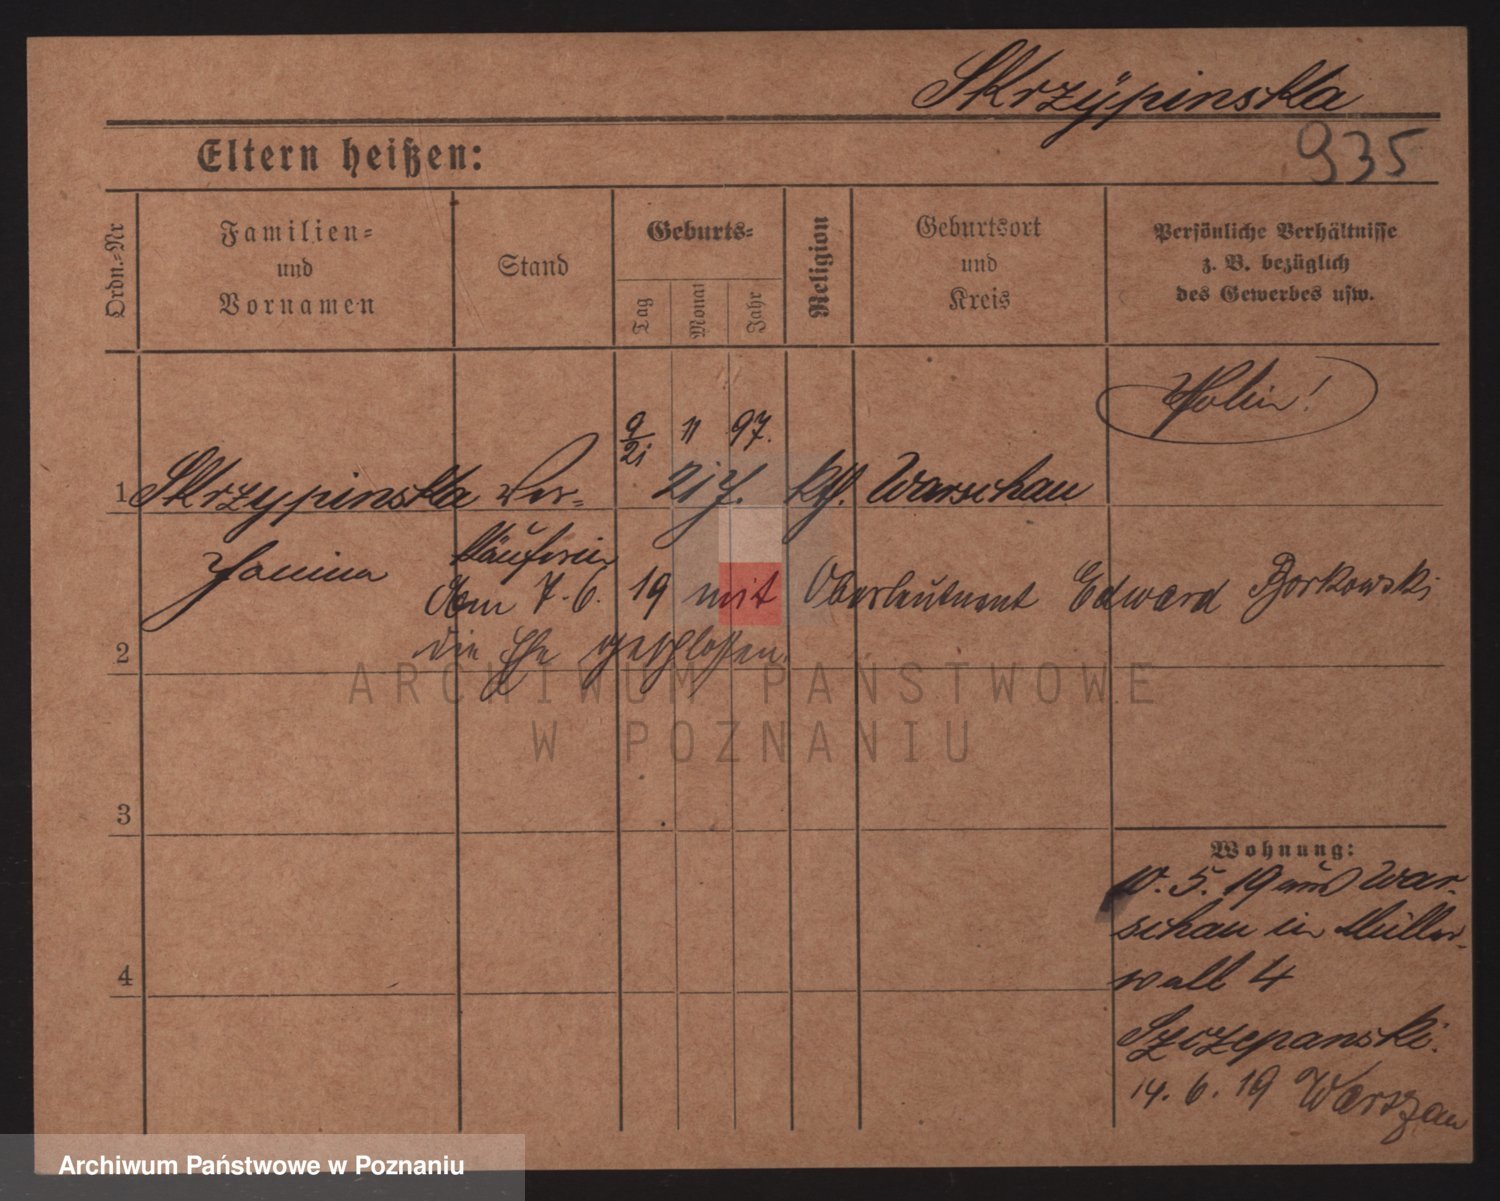 Skrzypinska
935
Eltern heißen:
Ordn.-Nr
Familien-
und
Vornamen
Stand
Geburts-
Tag
Monat
Jahr
Religion
Geburtsort
und
Kreis
Persönliche Verhältnisse
z. B. bezüglich
des Gewerbes usw.
Polin!
9/21 11 97.
1 Skrzypinska Ver- 21 J. kth. Warschau
Janina käuferin
Am 7.6.19 mit Oberleutnant Edward Borkowski
die Ehe geschlossen.
2
3
4
Wohnung:
10.5.19 aus War-
schau in Müller-
wall 4
Szczepanski.
14.6.19 Warszau
ARCHIWUM PAŃSTWOWE
W POZNANIU
Archiwum Państwowe w Poznaniu